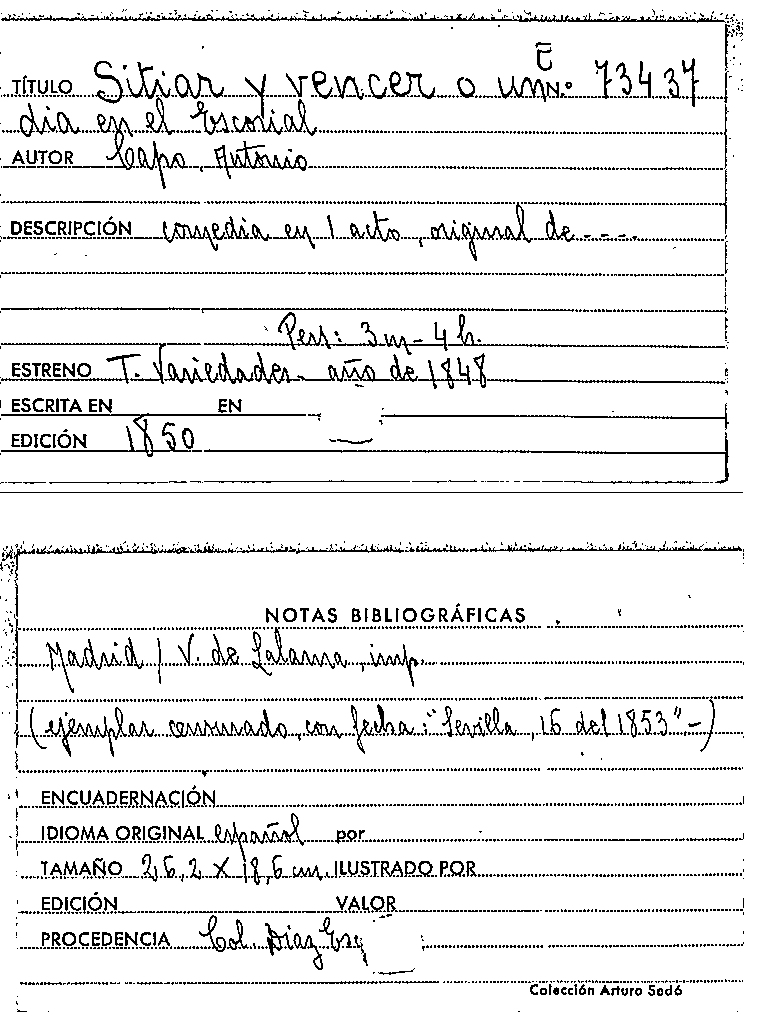 C̅
TÍTULO Sitiar y vencer o un N.º 73437
dia en el Escorial
AUTOR Capo, Antonio
DESCRIPCIÓN comedia en 1 acto, original de ----
Pers: 3 m - 4 h.
ESTRENO T. Variedades - año de 1848
ESCRITA EN EN
EDICIÓN 1850
NOTAS BIBLIOGRÁFICAS
Madrid / V. de Lalama, imp.
(ejemplar censurado, con fecha: "Sevilla, 16 del 1853" -)
ENCUADERNACIÓN
IDIOMA ORIGINAL español por
TAMAÑO 26,2 X 18,6 cm. ILUSTRADO POR
EDICIÓN VALOR
PROCEDENCIA Col. Díaz Esq
Colección Arturo Sedó